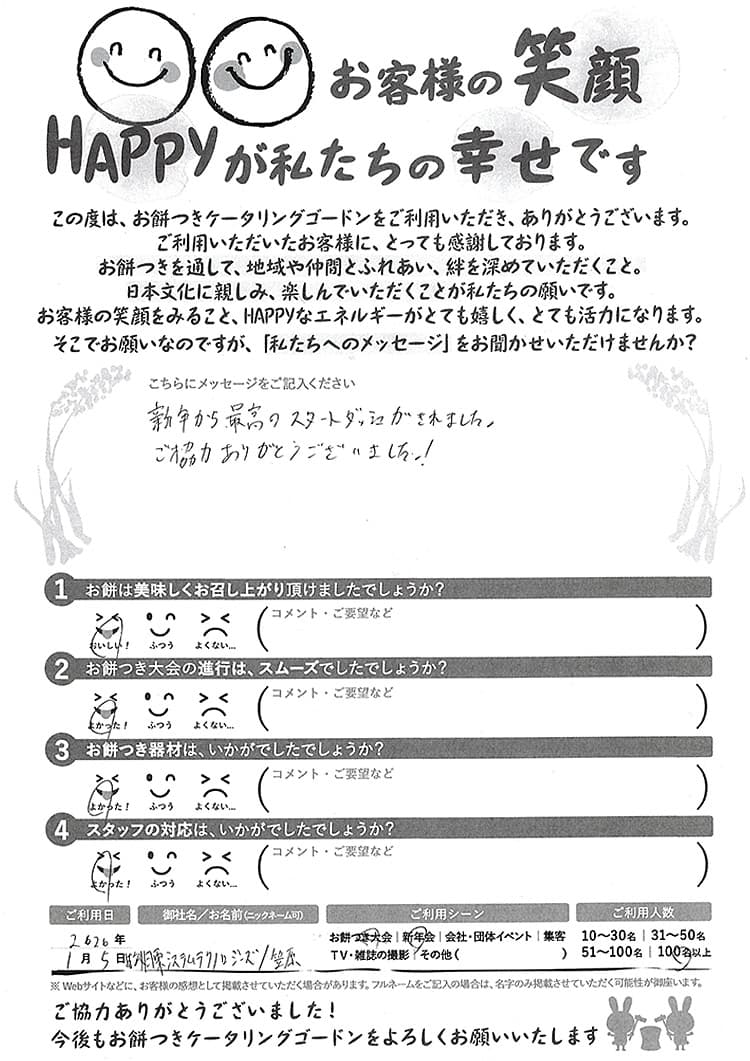 お客様の笑顔
HAPPYが私たちの幸せです
この度は、お餅つきケータリングゴードンをご利用いただき、ありがとうございます。
ご利用いただいたお客様に、とっても感謝しております。
お餅つきを通して、地域や仲間とふれあい、絆を深めていただくこと。
日本文化に親しみ、楽しんでいただくことが私たちの願いです。
お客様の笑顔をみること、HAPPYなエネルギーがとても嬉しく、とても活力になります。
そこでお願いなのですが、「私たちへのメッセージ」をお聞かせいただけませんか?
こちらにメッセージをご記入ください
新年から最高のスタートダッシュがきれました。
ご協力ありがとうございました!
1 お餅は美味しくお召し上がり頂けましたでしょうか?
おいしい! ふつう よくない… (コメント・ご要望など )
2 お餅つき大会の進行は、スムーズでしたでしょうか?
よかった! ふつう よくない… (コメント・ご要望など )
3 お餅つき器材は、いかがでしたでしょうか?
よかった! ふつう よくない… (コメント・ご要望など )
4 スタッフの対応は、いかがでしたでしょうか?
よかった! ふつう よくない… (コメント・ご要望など )
ご利用日 御社名/お名前(ニックネーム可) ご利用シーン ご利用人数
2026年 お餅つき大会|新年会|会社・団体イベント|集客 10〜30名|31〜50名
1月5日 システムテクノロジーズ/笠原 TV・雑誌の撮影|その他( ) 51〜100名|100名以上
※ Webサイトなどに、お客様の感想として掲載させていただく場合があります。フルネームをご記入の場合は、名字のみ掲載させていただく可能性が御座います。
ご協力ありがとうございました!
今後もお餅つきケータリングゴードンをよろしくお願いいたします